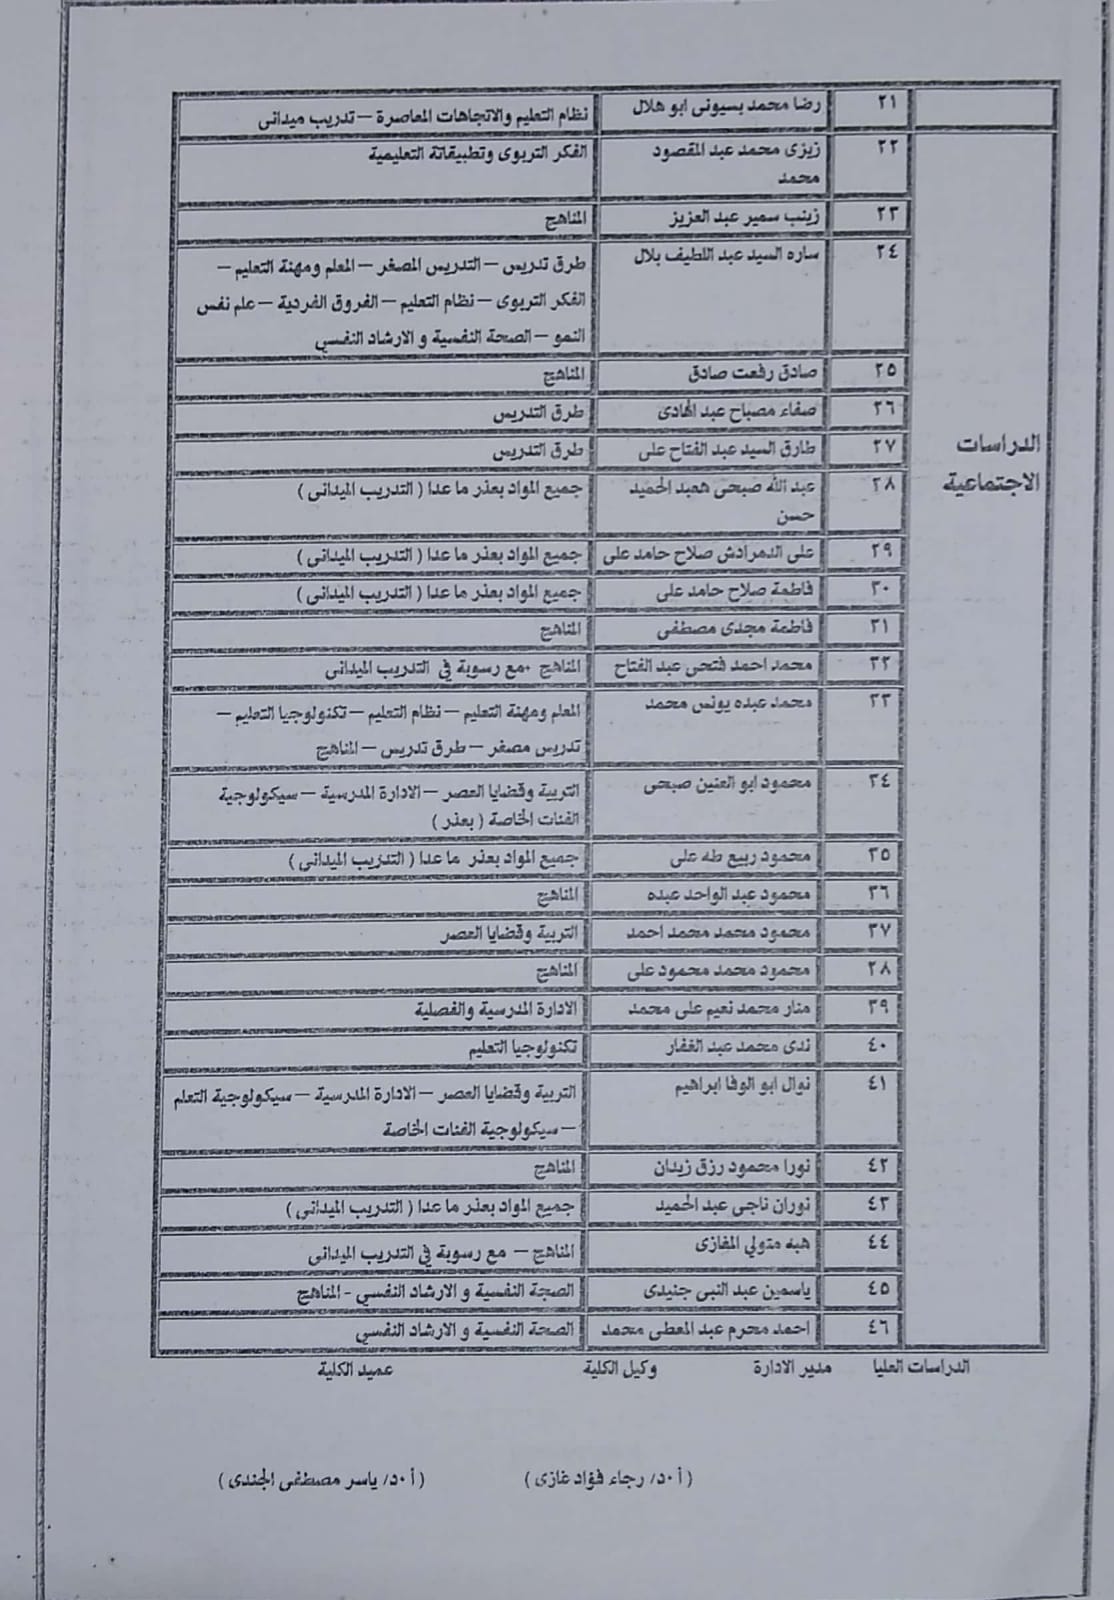 ٢١ رضا محمد بسيونى ابو هلال نظام التعليم والاتجاهات المعاصرة – تدريب ميدانى
٢٢ زيزى محمد عبد المقصود الفكر التربوى وتطبيقاتة التعليمية
محمد
٢٣ زينب سمير عبد العزيز المناهج
٢٤ ساره السيد عبد اللطيف بلال طرق تدريس – التدريس المصغر – المعلم ومهنة التعليم –
الفكر التربوى – نظام التعليم – الفروق الفردية – علم نفس
النمو – الصحة النفسية و الارشاد النفسي
٢٥ صادق رفعت صادق المناهج
٢٦ صفاء مصباح عبد الهادى طرق التدريس
الدراسات
الاجتماعية
٢٧ طارق السيد عبد الفتاح على طرق التدريس
٢٨ عبد الله صبحى همبد الحميد جميع المواد بعذر ما عدا ( التدريب الميدانى )
حسن
٢٩ على الدمرادش صلاح حامد على جميع المواد بعذر ما عدا ( التدريب الميدانى )
٣٠ فاطمة صلاح حامد على جميع المواد بعذر ما عدا ( التدريب الميدانى )
٣١ فاطمة مجدى مصطفى المناهج
٣٢ محمد احمد فتحى عبد الفتاح المناهج ٠مع رسوبة في التدريب الميدانى
٣٣ محمد عبده يونس محمد المعلم ومهنة التعليم – نظام التعليم – تكنولوجيا التعليم –
تدريس مصغر – طرق تدريس – المناهج
٣٤ محمود ابو العنين صبحى التربية وقضايا العصر – الادارة المدرسية – سيكولوجية
الفئات الخاصة ( بعذر )
٣٥ محمود ربيع طه على جميع المواد بعذر ما عدا ( التدريب الميدانى )
٣٦ محمود عبد الواحد عبده المناهج
٣٧ محمود محمد محمد احمد التربية وقضايا العصر
٣٨ محمود محمد محمود على المناهج
٣٩ منار محمد نعيم على محمد الادارة المدرسية والفصلية
٤٠ ندى محمد عبد الغفار تكنولوجيا التعليم
٤١ نوال ابو الوفا ابراهيم التربية وقضايا العصر – الادارة المدرسية – سيكولوجية التعلم
– سيكولوجية الفئات الخاصة
٤٢ نورا محمود رزق زيدان المناهج
٤٣ نوران ناجى عبد الحميد جميع المواد بعذر ما عدا ( التدريب الميدانى )
٤٤ هبه متولي المغازى المناهج – مع رسوبة في التدريب الميدانى
٤٥ ياسمين عبد النبى جنيدى الصحة النفسية و الارشاد النفسي - المناهج
٤٦ احمد محرم عبد المعطى محمد الصحة النفسية و الارشاد النفسي
الدراسات العليا مدير الادارة وكيل الكلية عميد الكلية
( أ٠د/ رجاء فؤاد غازى ) ( أ٠د/ ياسر مصطفى الجندى )